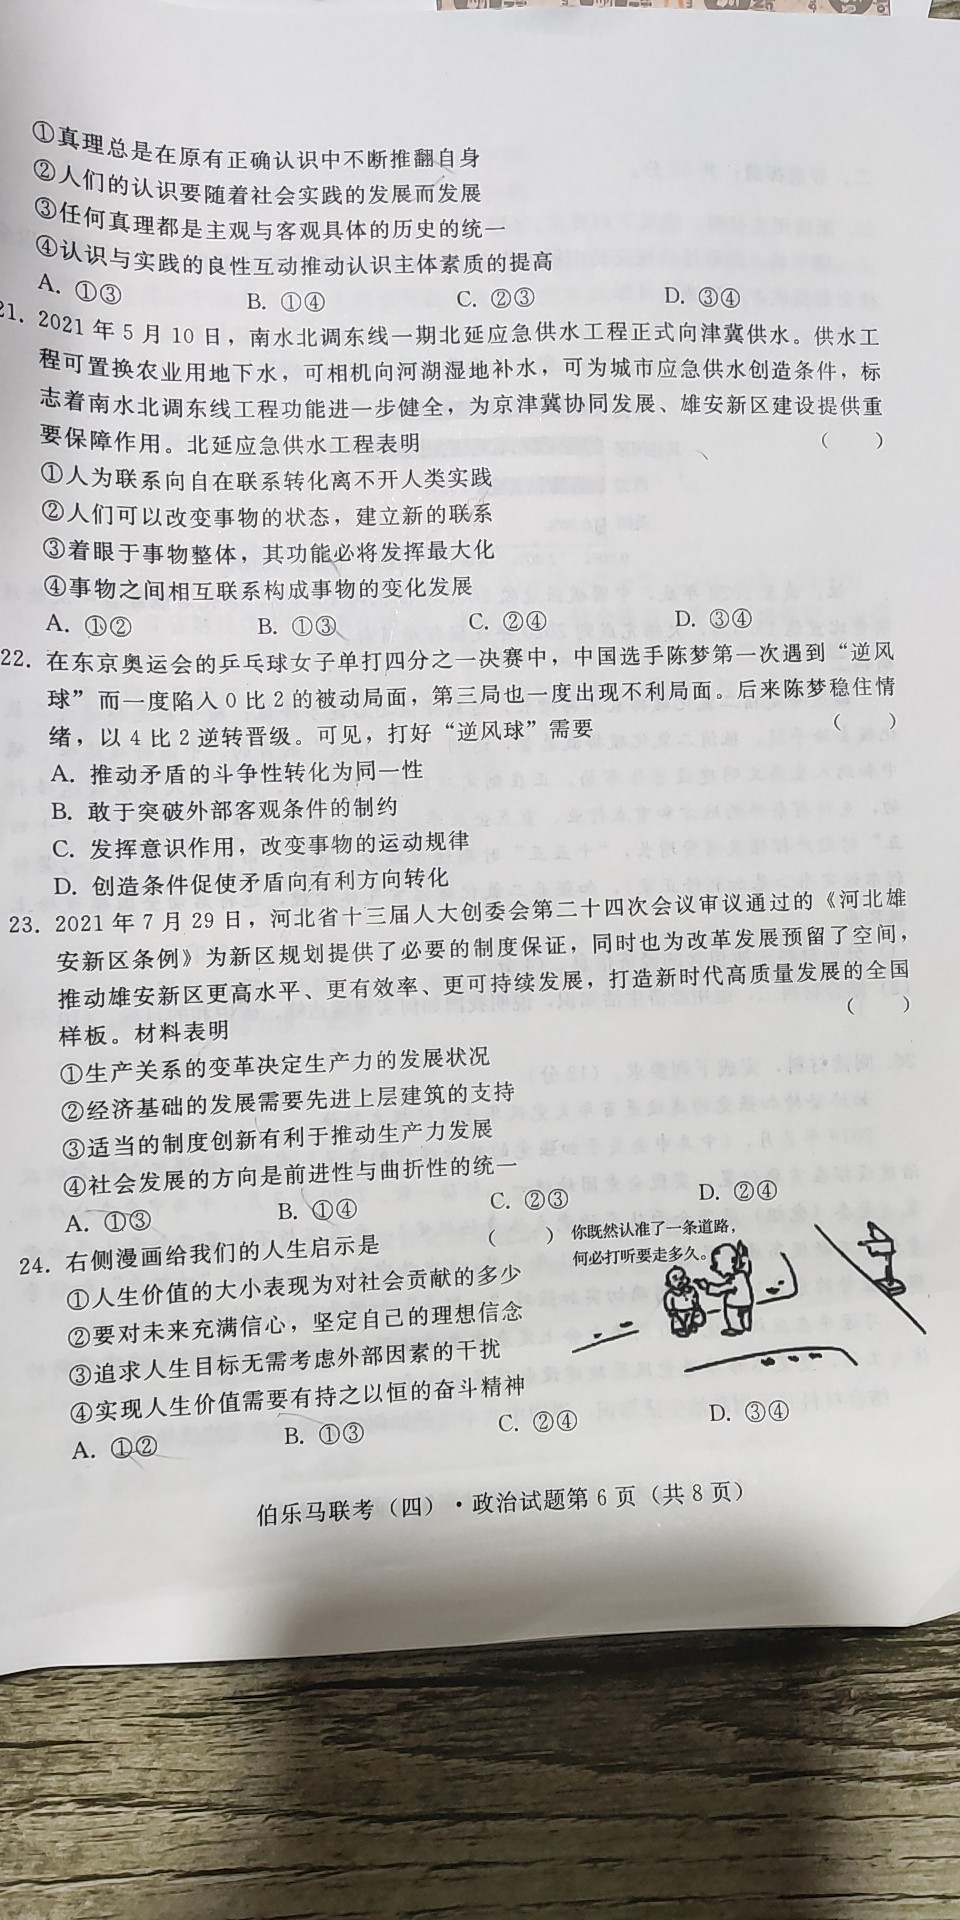 ①真理总是在原有正确认识中不断推翻自身
②人们的认识要随着社会实践的发展而发展
③任何真理都是主观与客观具体的历史的统一
④认识与实践的良性互动推动认识主体素质的提高
A. ①③ B. ①④ C. ②③ D. ③④
21. 2021 年 5 月 10 日，南水北调东线一期北延应急供水工程正式向津冀供水。供水工
程可置换农业用地下水，可相机向河湖湿地补水，可为城市应急供水创造条件，标
志着南水北调东线工程功能进一步健全，为京津冀协同发展、雄安新区建设提供重
要保障作用。北延应急供水工程表明 （ ）
①人为联系向自在联系转化离不开人类实践
②人们可以改变事物的状态，建立新的联系
③着眼于事物整体，其功能必将发挥最大化
④事物之间相互联系构成事物的变化发展
A. ①② B. ①③ C. ②④ D. ③④
22. 在东京奥运会的乒乓球女子单打四分之一决赛中，中国选手陈梦第一次遇到“逆风
球”而一度陷入 0 比 2 的被动局面，第三局也一度出现不利局面。后来陈梦稳住情
绪，以 4 比 2 逆转晋级。可见，打好“逆风球”需要 （ ）
A. 推动矛盾的斗争性转化为同一性
B. 敢于突破外部客观条件的制约
C. 发挥意识作用，改变事物的运动规律
D. 创造条件促使矛盾向有利方向转化
23. 2021 年 7 月 29 日，河北省十三届人大创委会第二十四次会议审议通过的《河北雄
安新区条例》为新区规划提供了必要的制度保证，同时也为改革发展预留了空间，
推动雄安新区更高水平、更有效率、更可持续发展，打造新时代高质量发展的全国
样板。材料表明 （ ）
①生产关系的变革决定生产力的发展状况
②经济基础的发展需要先进上层建筑的支持
③适当的制度创新有利于推动生产力发展
④社会发展的方向是前进性与曲折性的统一
A. ①③ B. ①④ C. ②③ D. ②④
24. 右侧漫画给我们的人生启示是 （ ）
①人生价值的大小表现为对社会贡献的多少
②要对未来充满信心，坚定自己的理想信念
③追求人生目标无需考虑外部因素的干扰
④实现人生价值需要有持之以恒的奋斗精神
A. ①② B. ①③ C. ②④ D. ③④
你既然认准了一条道路，
何必打听要走多久。
伯乐马联考（四）·政治试题第 6 页（共 8 页）